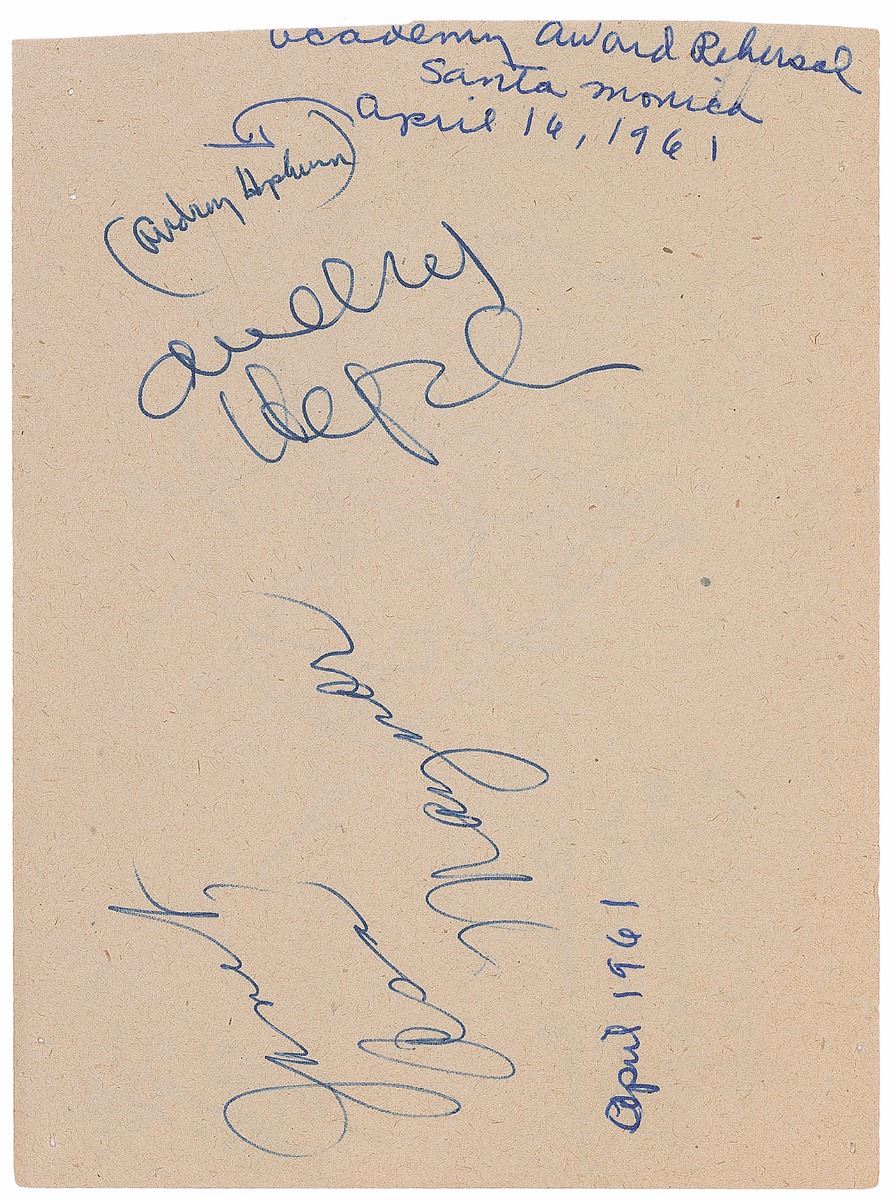 academy award Rehersal
Santa monica
April 16, 1961
(Audrey Hepburn)
Audrey
Hepburn
April 1961